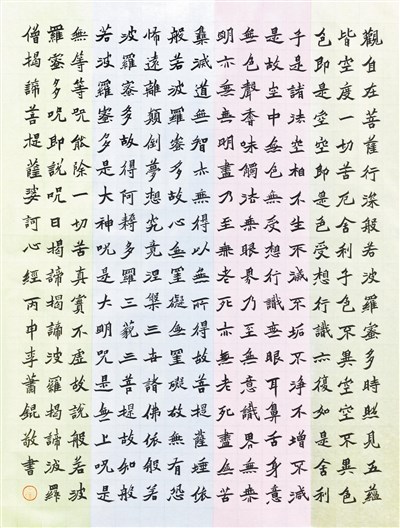 觀自在菩薩行深般若波羅蜜多時照見五蘊
皆空度一切苦厄舍利子色不異空空不異色
色即是空空即是色受想行識亦復如是舍利
子是諸法空相不生不滅不垢不淨不增不減
是故空中無色無受想行識無眼耳鼻舌身意
無色聲香味觸法無眼界乃至無意識界無無
明亦無無明盡乃至無老死亦無老死盡無苦
集滅道無智亦無得以無所得故菩提薩埵依
般若波羅蜜多故心無罣礙無罣礙故無有恐
怖遠離顛倒夢想究竟涅槃三世諸佛依般若
波羅蜜多故得阿耨多羅三藐三菩提故知般
若波羅蜜多是大神咒是大明咒是無上咒是
無等等咒能除一切苦真實不虛故說般若波
羅蜜多咒即說咒曰揭諦揭諦波羅揭諦波羅
僧揭諦菩提薩婆訶心經丙申李蕭錕敬書